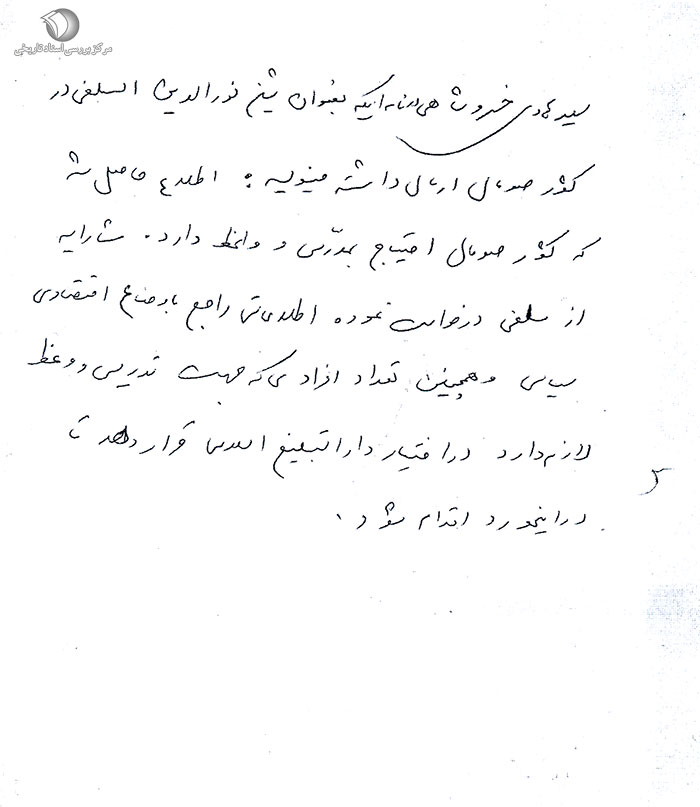 مرکز بررسی اسناد تاریخی
سید هادی خسروشاهی در نامه ایکه بعنوان شیخ نورالدین السلفی در
کشور صومالی ارسال داشته مینویسد : اطلاع حاصل شد
که کشور صومالی احتیاج بمدرّس و واعظ دارد . مشارالیه
از سلفی درخواست نموده اطلاعاتی راجع باوضاع اقتصادی
سیاسی و همچنین تعداد افرادی که جهت تدریس و وعظ
لازم دارد در اختیار دارالتبلیغ اسلامی قرار دهد تا
در اینمورد اقدام شود .